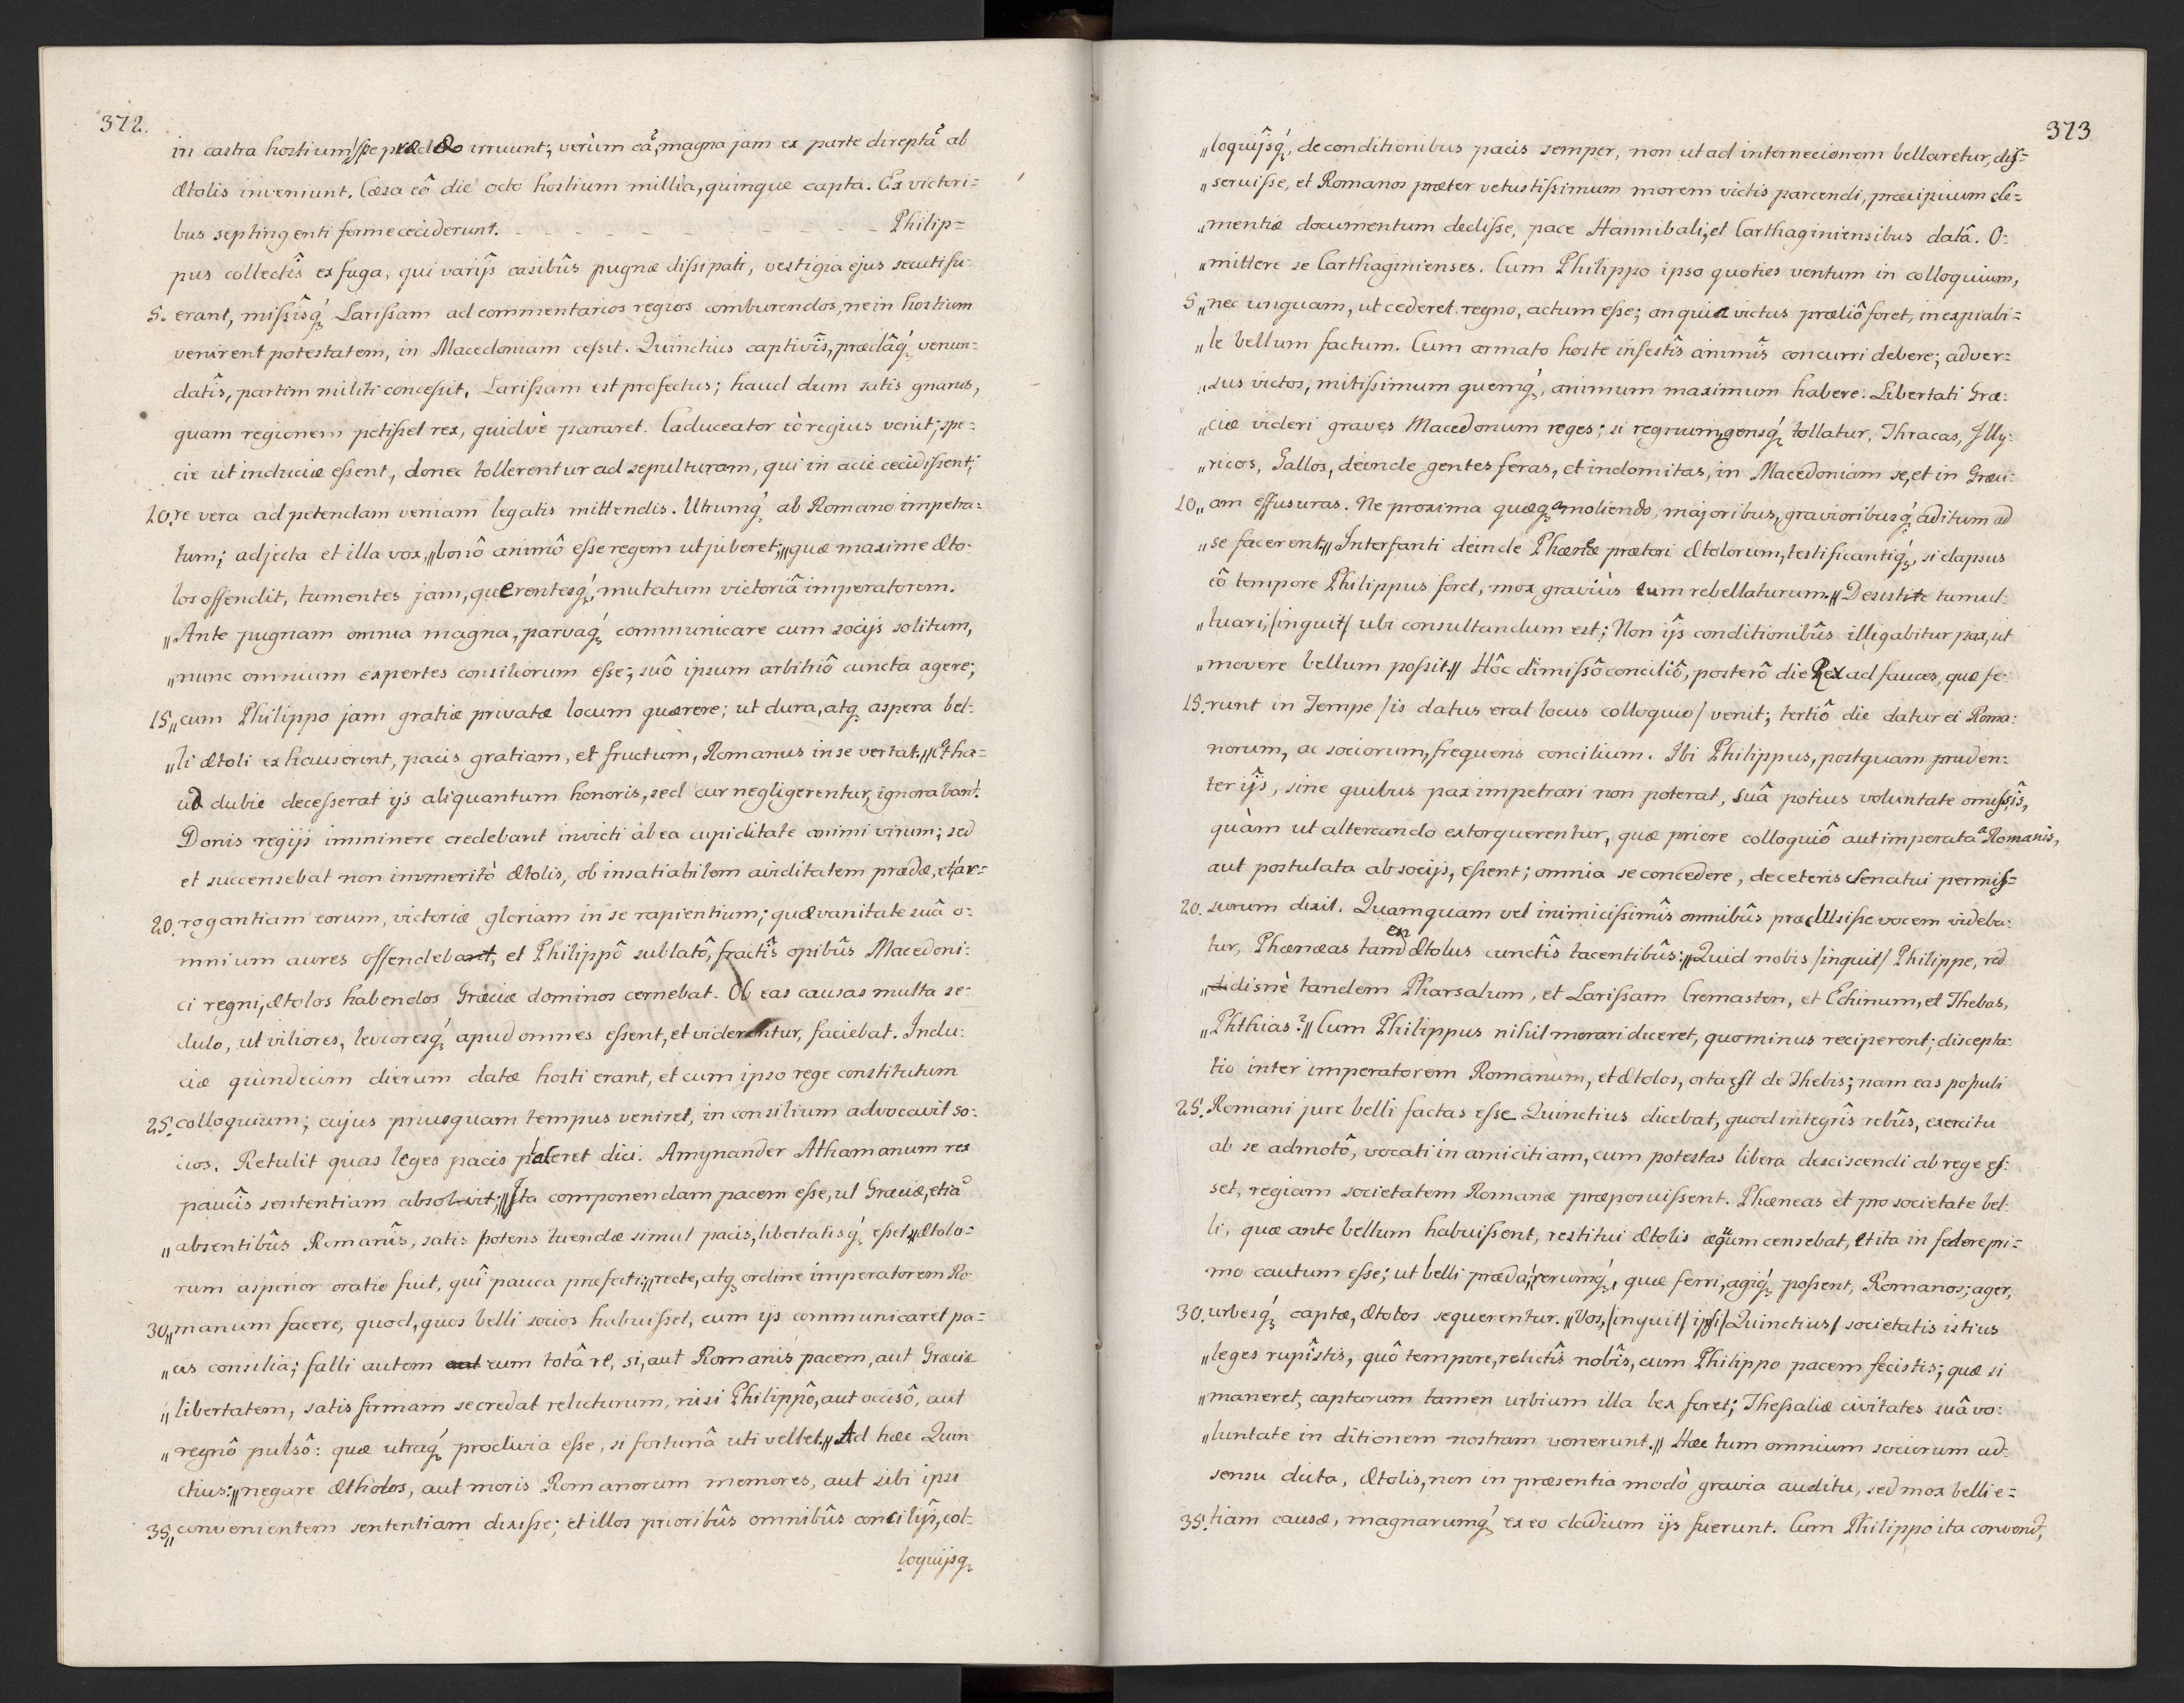 372.
in castra hostium, spe prædæ irruunt; verùm eâ, magna jam ex parte direptâ ab
Ætolis inveniunt. Cæsa eô die octo hostium millia, quinque capta. Ex victori=
bus septingenti ferme ceciderunt. _ _ _ _ _ _ _ _ _ _ _ Philip=
pus collectîs ex fuga, qui varijs casibûs pugnæ dissipati, vestigia ejus secuti fu=
5. erant, missîsq́ꝫ Larissam ad commentarios regios comburendos, ne in hostium
venirent potestatem, in Macedoniam cessit. Quinctius captivîs, prædâq́ꝫ venun=
datîs, partim militi concessit, Larissam est profectus; haud dum satis gnarus,
quam regionem petisset rex, quidvè pararet. Caduceator eò regius venit; spe=
cie ut induciæ essent, donec tollerentur ad sepulturam, qui in acie cecidissent;
10. re vera ad petendam veniam legatis mittendis. Utrumq́ꝫ ab Romano impetra=
tum; adjecta et illa vox, „bonô animô esse regem ut juberet;„ quæ maxime Æto=
los offendit, tumentes jam, querentesq́ꝫ mutatum victoriâ imperatorem.
„Ante pugnam omnia magna, parvaq́ꝫ communicare cum socijs solitum,
„nunc omnium expertes consiliorum esse; suô ipsum arbitriô cuncta agere;
15. „cum Philippo jam gratiæ privatæ locum quærere; ut dura, atqꝫ aspera bel=
„li Ætoli exhauserint, pacis gratiam, et fructum, Romanus in se vertat.„ Et ha=
ud dubie decesserat ijs aliquantum honoris, sed cur negligerentur, ignorabant.
Donis regijs imminere credebant invicti ab ea cupiditate animi virum; sed
et succensebat non immeritò Ætolis, ob insatiabilem aviditatem prædæ, et ar=
20. rogantiam eorum, victoriæ gloriam in se rapientium; quæ vanitate suâ o=
mnium aures offendebant, et Philippô sublatô, fractîs opibûs Macedoni=
ci regni, Ætolos habendos Græciæ dominos cernebat. Ob eas causas multa se=
dulo, ut viliores, levioresq́ꝫ apud omnes essent, et viderentur, faciebat. Indu=
ciæ quindecim dierum datæ hosti erant, et cum ipso rege constitutum
25. colloquium; cujus priusquam tempus veniret, in consilium advocavit so=
cios. Retulit quas leges pacis placeret dici. Amynander Athamanum rex
paucîs sententiam absolvit; „Ita componendam pacem esse, ut Græcia, etiã
„absentibûs Romanîs, satis potens tuendæ simul pacis, libertatisq́ꝫ esset.„ Ætolo=
rum asperior oratio fuit, quî pauca præfati; „recte, atqꝫ ordine imperatorem Ro=
30. „manum facere, quod, quos belli socios habuisset, cum ijs communicaret pa=
„cis consilia; falli autem eum totâ re, si, aut Romanis pacem, aut Græciæ
„libertatem, satis firmam se credat relicturum, nisi Philippô, aut occisô, aut
„regnô pulsô: quæ utraq́ꝫ proclivia esse, si fortunâ uti vellet.„ Ad hæc Quin=
ctius: „negare Æthiolos, aut moris Romanorum memores, aut sibi ipsi
35. „convenientem sententiam dixisse; et illos prioribûs omnibûs concilijs, col=
loquijsqꝫ
373
„loquîjsq́ꝫ, de conditionibus pacis semper, non ut ad internecionem bellaretur, dis=
„seruisse, et Romanos præter vetustissimum morem victis parcendi, præcipuum cle=
„mentiæ documentum dedisse, pace Hannibali, et Carthaginiensibus datâ. O=
„mittere se Carthaginienses. Cum Philippo ipso quoties ventum in colloquium,
5 „nec unquam, ut cederet regno, actum esse; an quia victus præliô foret, inexpiabi=
„le bellum factum. Cum armato hoste infestîs animîs concurri debere; adver=
„sus victos, mitissimum quemq́ꝫ, animum maximum habere. Libertati Græ=
„ciæ videri graves Macedonum reges; si regnum, gensq́ꝫ tollatur, Thracas, Illy=
„ricos, Gallos, deinde gentes feras, et indomitas, in Macedoniam se, et in Græci=
10. „am effusuras. Ne proxima quæqꝫ amoliendo, majoribus, gravioribusq́ꝫ aditum ad
„se facerent.„ Interfanti deinde Phæneæ prætori Ætolorum, testificantiq́ꝫ, si elapsus
eô tempore Philippus foret, mox graviùs eum rebellaturum. „Desistite tumul=
„tuari, /inquit/ ubi consultandum est; Non îjs conditionibûs illigabitur pax, ut
„movere bellum possit.„ Hôc dimissô conciliô, posterô die Rex ad fauces, quæ fe=
15. runt in Tempe /is datus erat locus colloquio/ venit; tertiô die datur ei Roma=
norum, ac sociorum, frequens concilium. Ibi Philippus, postquam pruden=
ter îjs, sine quibus pax impetrari non poterat, suâ potius voluntate omissîs,
quàm ut altercando extorquerentur, quæ priore colloquiô aut imperata a Romanis,
aut postulata ab socijs, essent; omnia se concedere, de ceteris Senatui permis=
20. surum dixit. Quamquam vel inimicissimîs omnibûs præclusisse vocem videba=
tur, Phænæas tamen Ætolus cunctîs tacentibûs: „Quid nobis /inquit/ Philippe, red
„disnè tandem Pharsalum, et Larissam Cremasten, et Echinum, et Thebas,
„Phthias?„ Cum Philippus nihil morari diceret, quominus reciperent; discepta=
tio inter imperatorem Romanum, et Ætolos, orta est de Thebis; nam eas populi
25. Romani jure belli factas esse Quinctius dicebat, quod integrîs rebûs, exercitu
ab se admotô, vocati in amicitiam, cum potestas libera desciscendi ab rege es=
set, regiam societatem Romanæ præposuissent. Phæneas et pro societate bel=
li, quæ ante bellum habuissent, restitui Ætolis æquum censebat, et ita in fœdere pri=
mo cautum esse; ut belli præda, rerumq́ꝫ, quæ ferri, agiq́ꝫ possent, Romanos; ager,
30. urbesq́ꝫ captæ, Ætolos sequerentur. „Vos, /inquit/ ipsi /Quinctius/ societatis istius
„leges rupîstis, quô tempore, relictîs nobîs, cum Philippo pacem fecistis; quæ si
„maneret, captarum tamen urbium illa lex foret; Thessaliæ civitates suâ vo=
„luntate in ditionem nostram venerunt.„ Hæc tum omnium sociorum ad=
sensu dicta, Ætolis, non in præsentia modò gravia auditu, sed mox belli e=
35. tiam causæ, magnarumq́ꝫ ex eo cladium ijs fuerunt. Cum Philippo ita convenit,